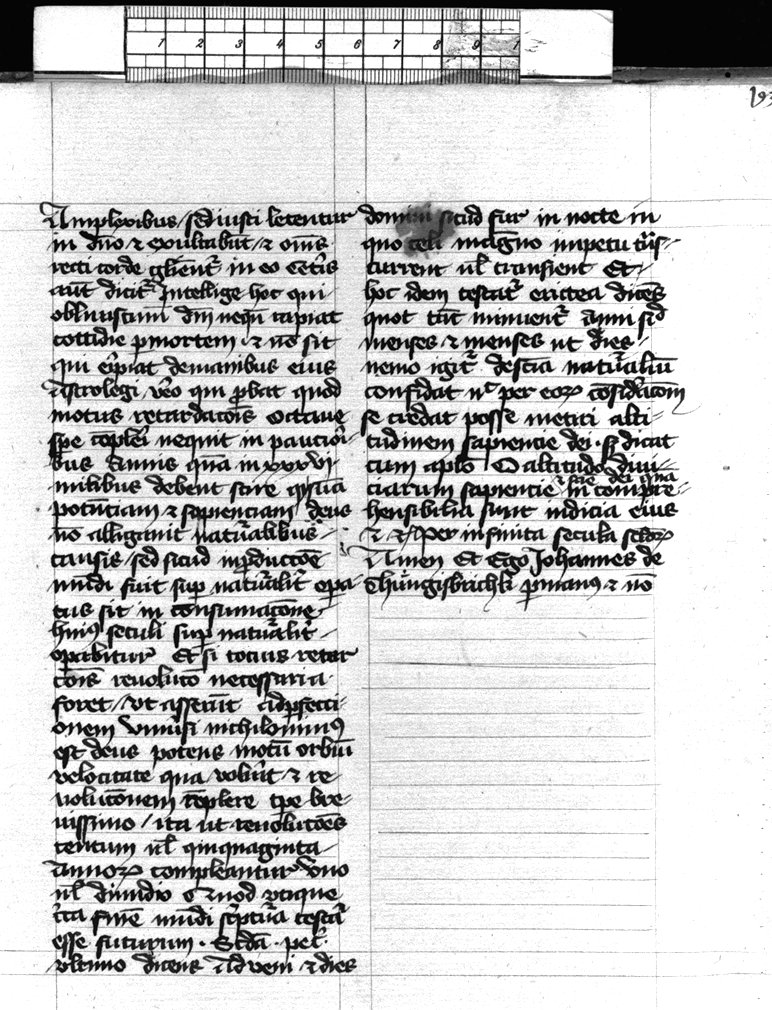 Amplexibus / sed iusti letentur
in dno & exultabut / & oms
recti corde gbient in eo
aut dicit Intellige hoc qui
obliuistimi dm nequ rapiat
cottidie pmortem · & no sit
qui eipiat demanibus eius
Astrologi vo qui pbat quod
motus retardacois octaue
spe copleri nequit in paucioi-
bus Annis qua in xxxvi
milibus debent scire qsua
potenciam & sapienciam deus
no alligauit naturalibus
causis / sed sicud inpductoe
mudi fuit sup naturalit opa-
tus sit in consumacone
huiq seculi sup naturalit
opabitur Et si tocius retar
cois reuoluco necessaria
foret / vt asserut adpfecti-
onem vniusi nichilominq
est deus potens motu orbiu
velocitate qua voluit & re-
uoluconem coplere tpe bre-
uissimo / ita ut reuolucoes
centum ul quinquaginta
annorum compleantur vno
ul dimidio quod vtique
cca fine mudi scptura testa
esse futurum · Scda · pet ·
vltimo dicens Adveni & dies
domini sicud fur in nocte in
quo celi magno impetu tus-
current ul transient Et
hoc idem testat erictea dices
quot tut minuent Anni sid
menses & menses ut dies
nemo igit descia naturaliu
confidat nc per eorum cosidacom
se credat posse metiri alti-
tudinem sapiencie dei · s dicat
cum aplo O altitudo diui-
& scie dei qua
ciarum sapiencie in compre
hensibilia sunt iudicia eius
& Per infinita secula sclorum
Amen Et Ego Johannes de
Thungisbruchk pmanq & no